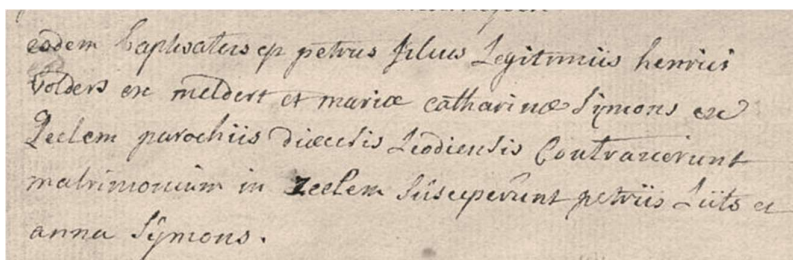 eodem baptisatus est petrus filius Legitimus henrici
volders ex meldert et mariæ catharinæ Sÿmons ex
Zeelem parochiis diæcesis Leodiensis Contraxerunt
matrimonium in Zeelem Susceperunt petrus Luts et
anna Sÿmons.